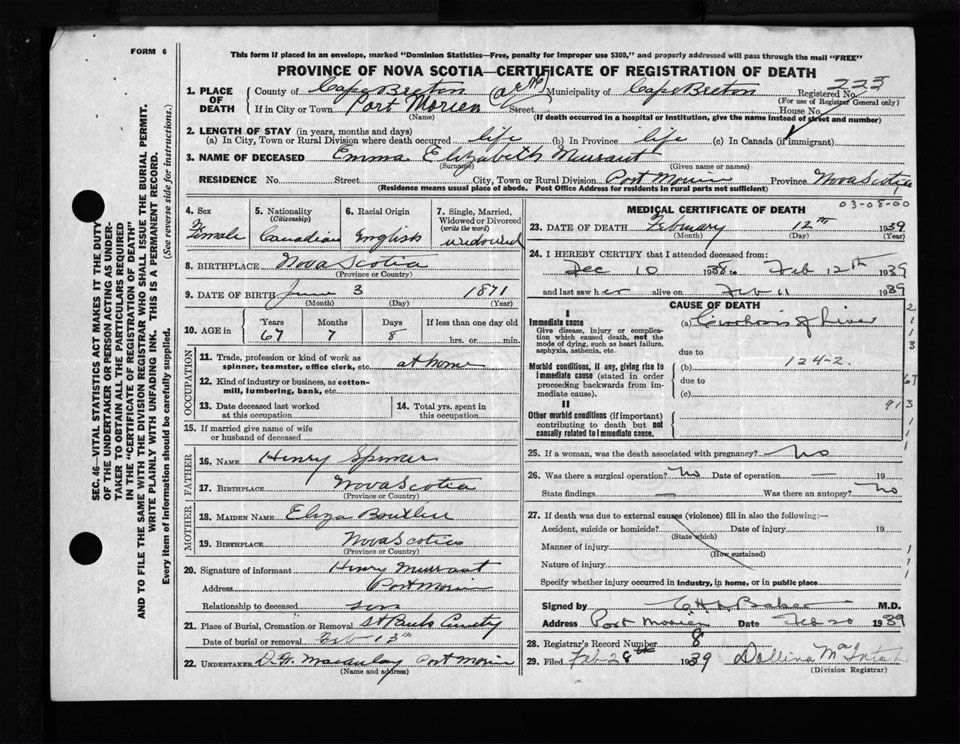 FORM 6
This form if placed in an envelope, marked "Dominion Statistics—Free, penalty for improper use $300," and properly addressed will pass through the mail "FREE"
PROVINCE OF NOVA SCOTIA—CERTIFICATE OF REGISTRATION OF DEATH
SEC. 46—VITAL STATISTICS ACT MAKES IT THE DUTY
OF THE UNDERTAKER OR PERSON ACTING AS UNDER-
TAKER TO OBTAIN ALL THE PARTICULARS REQUIRED
IN THE "CERTIFICATE OF REGISTRATION OF DEATH"
AND TO FILE THE SAME WITH THE DIVISION REGISTRAR WHO SHALL ISSUE THE BURIAL PERMIT.
WRITE PLAINLY WITH UNFADING INK. THIS IS A PERMANENT RECORD.
Every item of information should be carefully supplied. (See reverse side for instructions.)
1. PLACE OF DEATH
County of Cape Breton Municipality of Cape Breton Registered No. 225
(For use of Registrar General only)
If in City or Town Port Morien Street House No.
(Name) (If death occurred in a hospital or institution, give the name instead of street and number)
2. LENGTH OF STAY (in years, months and days)
(a) In City, Town or Rural Division where death occurred life (b) In Province life (c) In Canada (if immigrant)
3. NAME OF DECEASED Emma Elizabeth
(Surname) (Given name or names)
RESIDENCE No. Street City, Town or Rural Division Port Morien Province Nova Scotia
(Residence means usual place of abode. Post Office Address for residents in rural parts not sufficient)
4. Sex 5. Nationality (Citizenship) 6. Racial Origin 7. Single, Married, Widowed or Divorced (write the word)
Female Canadian English widowed
8. BIRTHPLACE Nova Scotia
(Province or Country)
9. DATE OF BIRTH June 3 1871
(Month) (Day) (Year)
10. AGE in Years Months Days If less than one day old
67 7 8 hrs. or min.
OCCUPATION
11. Trade, profession or kind of work as spinner, teamster, office clerk, etc. at home
12. Kind of industry or business, as cotton-mill, lumbering, bank, etc.
13. Date deceased last worked at this occupation 14. Total yrs. spent in this occupation
15. If married give name of wife or husband of deceased
FATHER
16. NAME Henry Spencer
17. BIRTHPLACE Nova Scotia
(Province or Country)
MOTHER
18. MAIDEN NAME Eliza Boutlier
19. BIRTHPLACE Nova Scotia
(Province or Country)
20. Signature of informant Henry
Address Port Morien
Relationship to deceased son
21. Place of Burial, Cremation or Removal
Date of burial or removal Feb 13th
22. UNDERTAKER D. W. Macaulay Port Morien
(Name and address)
03-08-00
MEDICAL CERTIFICATE OF DEATH
23. DATE OF DEATH February 12th 1939
(Month) (Day) (Year)
24. I HEREBY CERTIFY that I attended deceased from:
Dec 10 1938 to Feb 12th 1939
and last saw her alive on Feb 11 1939
CAUSE OF DEATH
I
Immediate cause
Give disease, injury or complication which caused death, not the mode of dying, such as heart failure, asphyxia, asthenia, etc.
(a) Cirrhosis of Liver
due to
Morbid conditions, if any, giving rise to immediate cause (stated in order proceeding backwards from immediate cause).
(b) 124-2
due to
(c)
II
Other morbid conditions (if important) contributing to death but not causally related to immediate cause.
25. If a woman, was the death associated with pregnancy? No
26. Was there a surgical operation? No Date of operation 19
State findings Was there an autopsy? No
27. If death was due to external causes (violence) fill in also the following:—
Accident, suicide or homicide? Date of injury 19
(State which)
Manner of injury
(How sustained)
Nature of injury
Specify whether injury occurred in industry, in home, or in public place
Signed by Baker M.D.
Address Port Morien Date Feb 20 1939
28. Registrar's Record Number 8
29. Filed Feb 28th 1939
(Division Registrar)